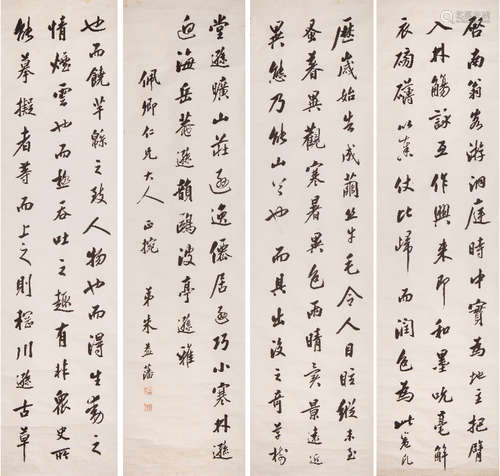 啓南翁客游洞庭時中實為地主把臂
入林觴詠互作興來即和墨吮毫解
衣磅礴以素仗比歸而潤色為此卷凡
歷歲始告成繭絲牛毛令人目眩縱未至
蚤暮異觀寒暑異色雨晴異景遠近
異態乃能山谷也而具出沒之奇草樹
也而饒芊綿之致人物也而得生動之
情煙雲也而極吞吐之趣有非畫史所
能摹擬者等而上之則輞川遜古草
堂遜曠山莊遜逸僊居遜巧小寒林遜
迫海岳菴遜韻鷗波亭遜雅
佩卿仁兄大人正捥
弟朱益藩